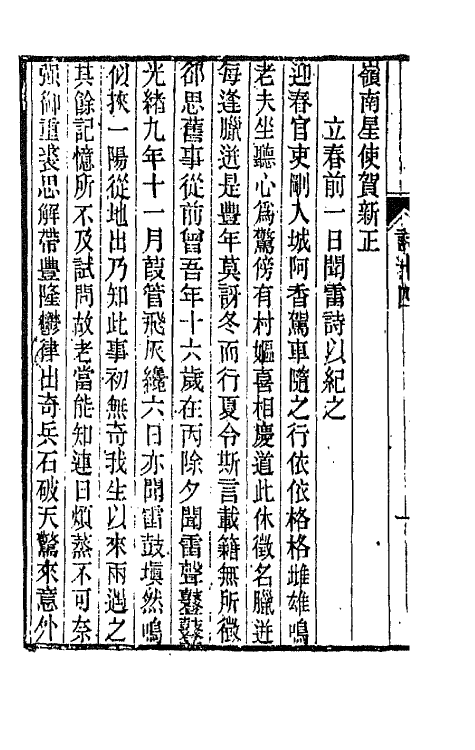 嶺南星使賀新正
立春前一日聞雷詩以紀之
迎春官吏剛入城阿香駕車隨之行依依格格雌雄鳴
老夫坐聽心為驚傍有村嫗喜相慶道此休徵名臘迸
每逢臘迸是豐年莫訝冬而行夏令斯言載籍無所徵
卻思舊事從前曾吾年十六歲在丙除夕聞雷聲鼟鼟
光緒九年十一月葭管飛灰纔六日亦聞雷鼓塡然鳴
似挾一陽從地出乃知此事初無奇我生以來兩遇之
其餘記憶所不及試問故老當能知連日煩蒸不可奈
强御重裘思解帶豐隆鬱律出奇兵石破天驚來意外